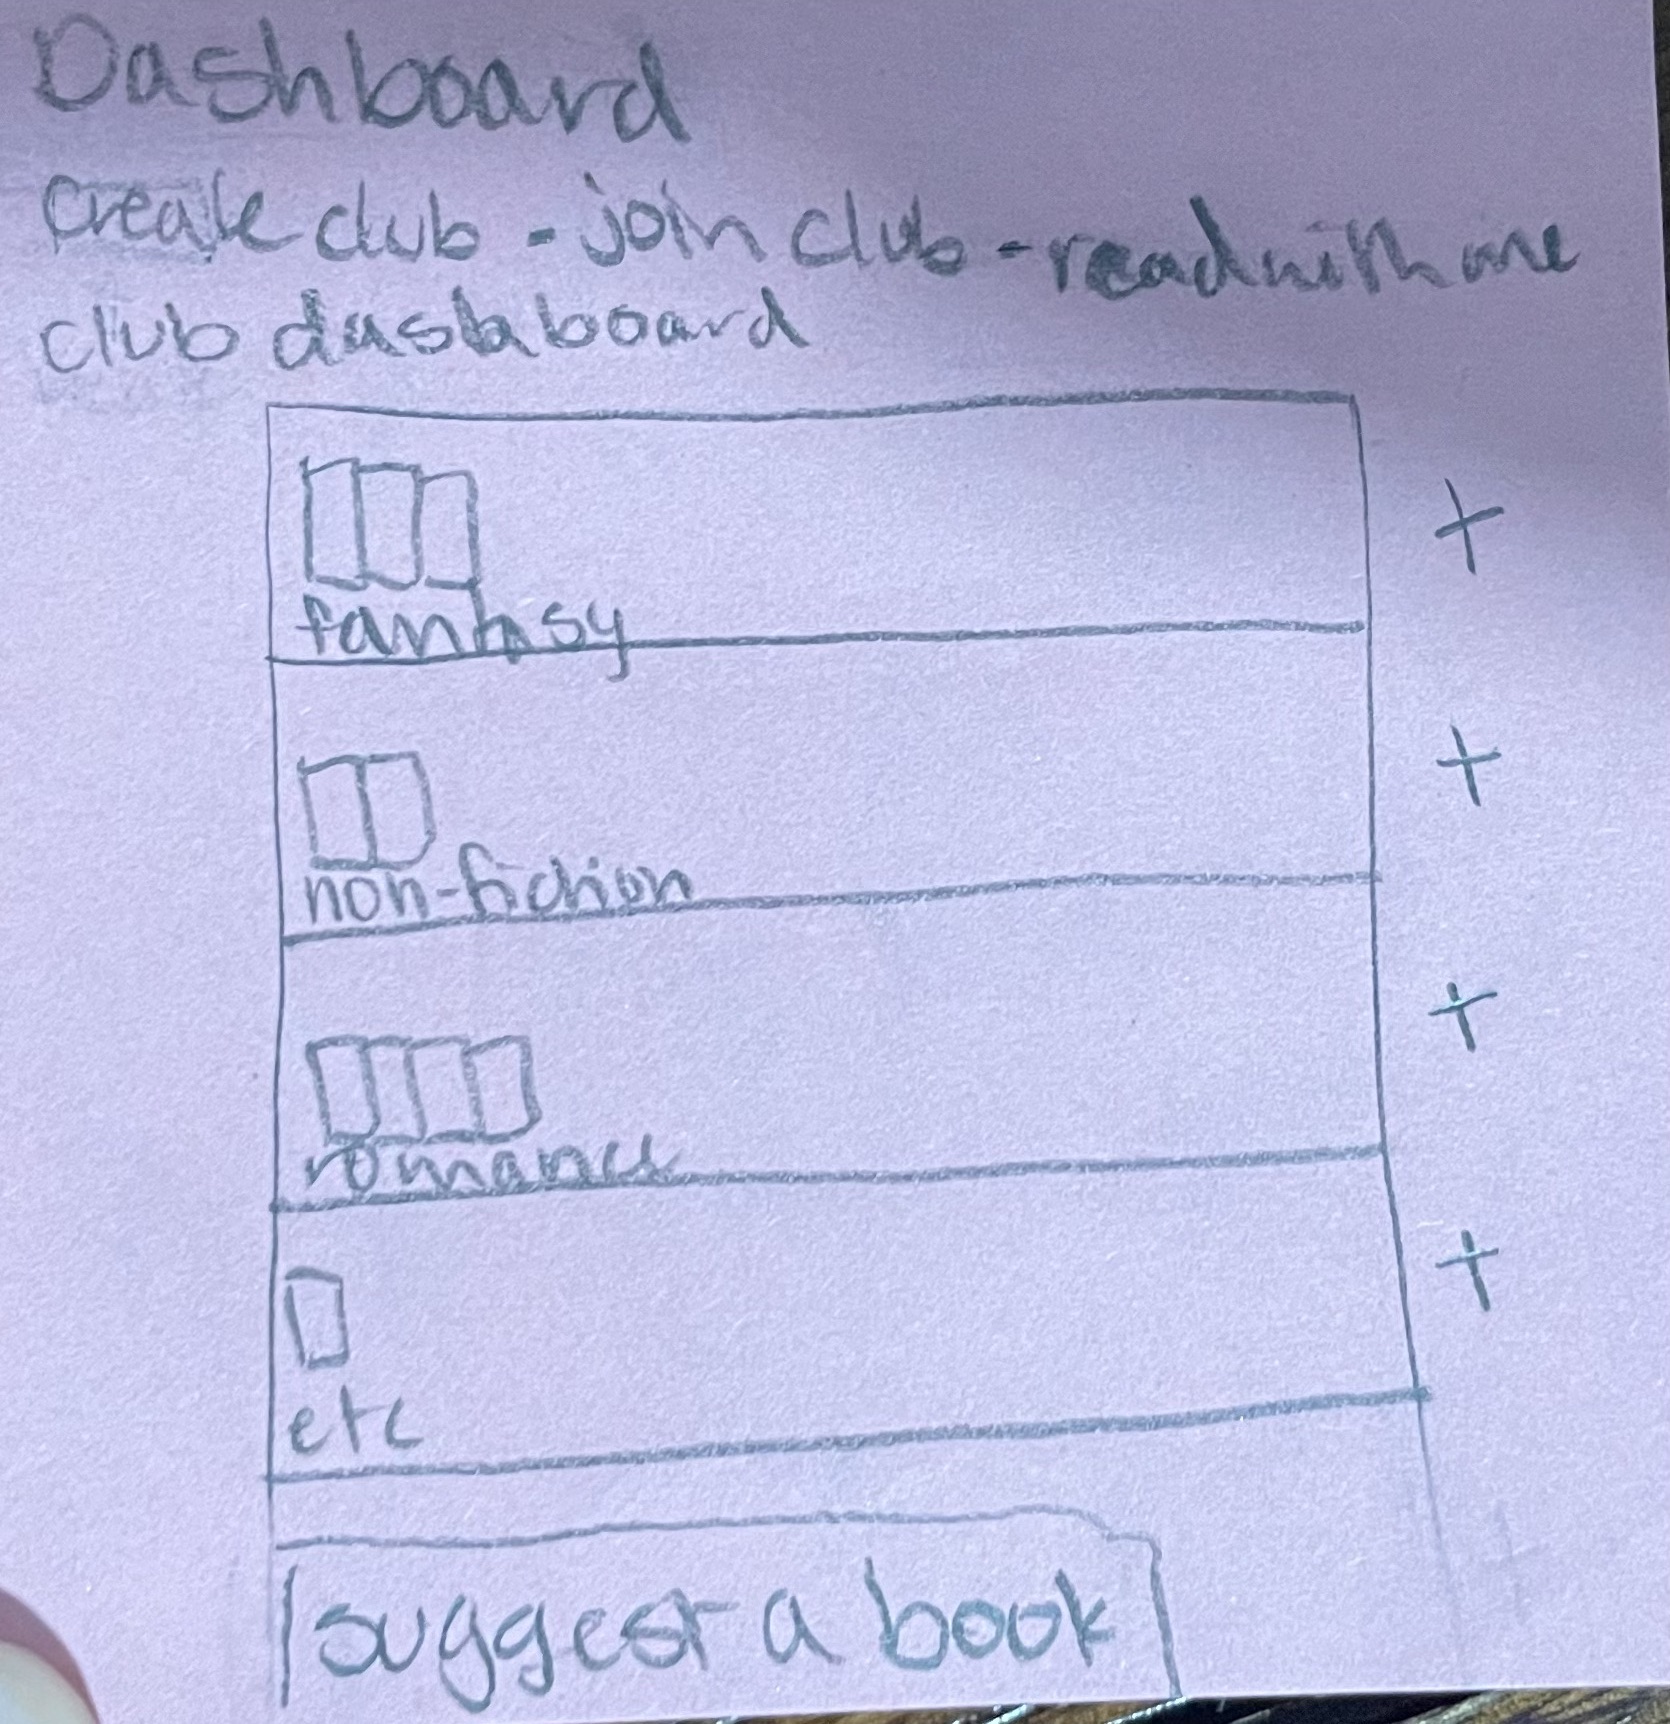 Dashboard
create club - join club - read with me
club dashboard
fantasy
+
non-fiction
+
romance
+
etc
+
suggest a book